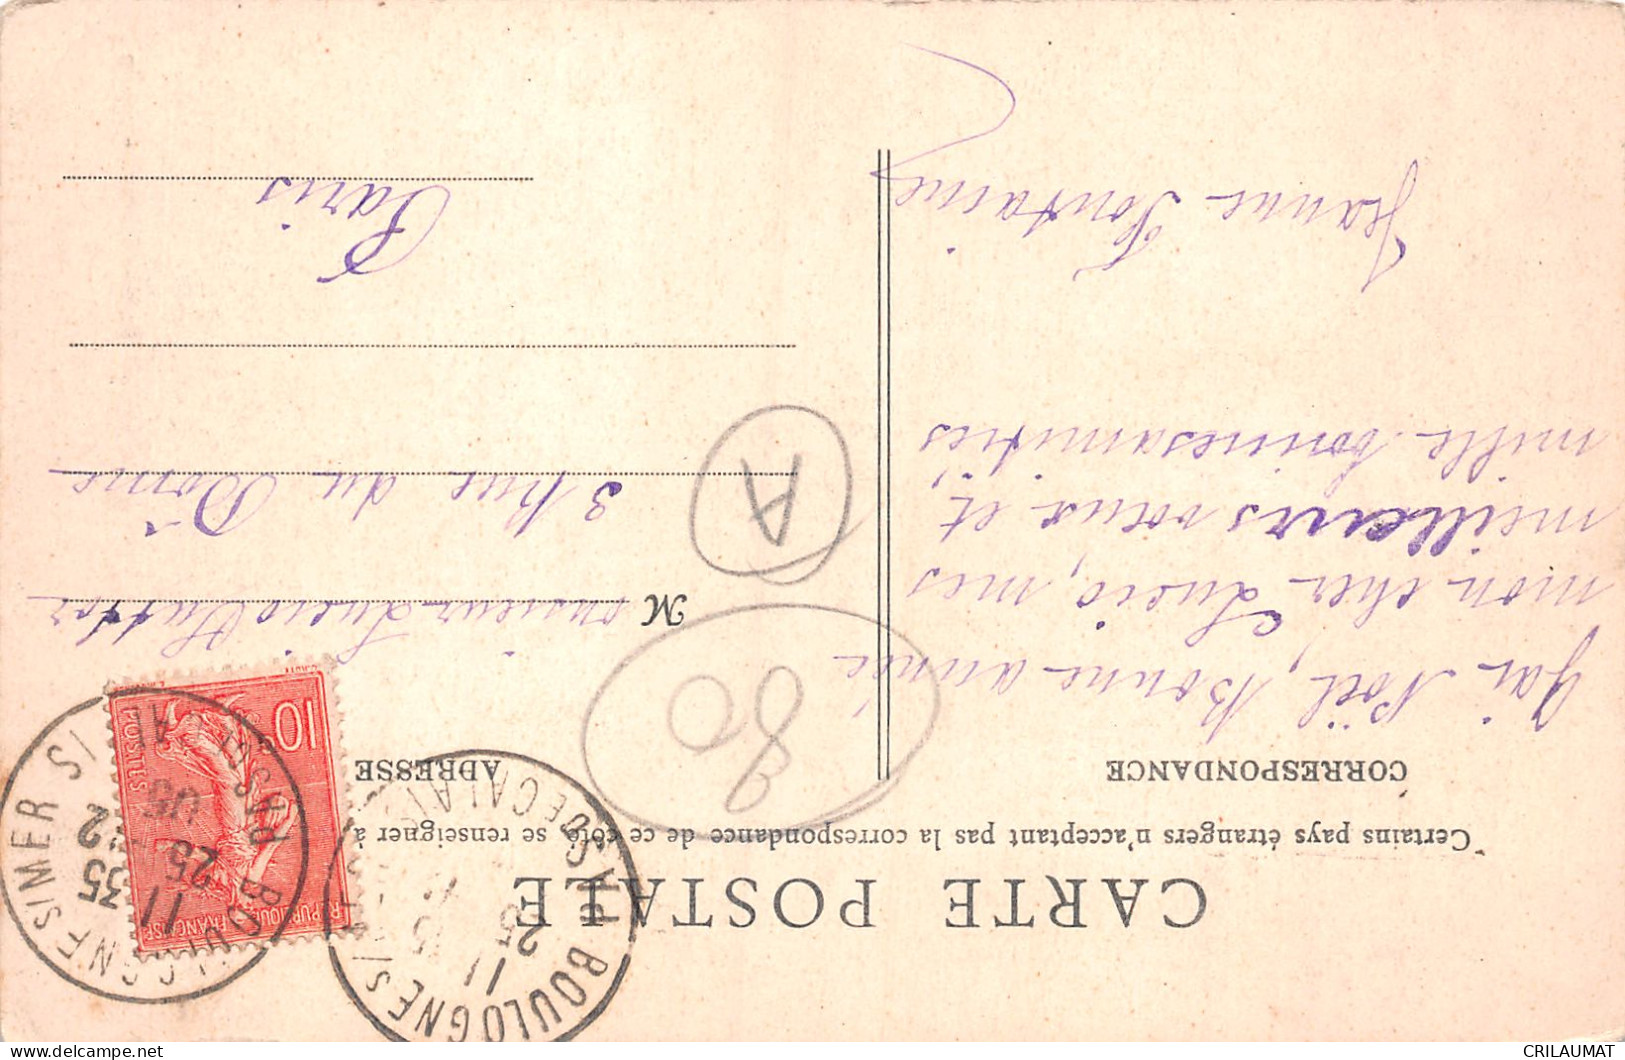 CARTE POSTALE
Certains pays étrangers n'acceptant pas la correspondance de ce côté, se renseigner à
CORRESPONDANCE
Gai Noël, Bonne année
mon cher Lucio, mes
meilleurs vœux et,
mille bonnes amitiés
Jeanne Fontaine
ADRESSE
Monsieur Lucio
3 Rue du Dôme
Paris
80
A
10
POSTES
REPUBLIQUE FRANÇAISE
BOULOGNE SI MER
PAS DE CALAIS
11 35
25 12
05
BOULOGNE S
PAS DE CALAIS
11
25
CRILAUMAT